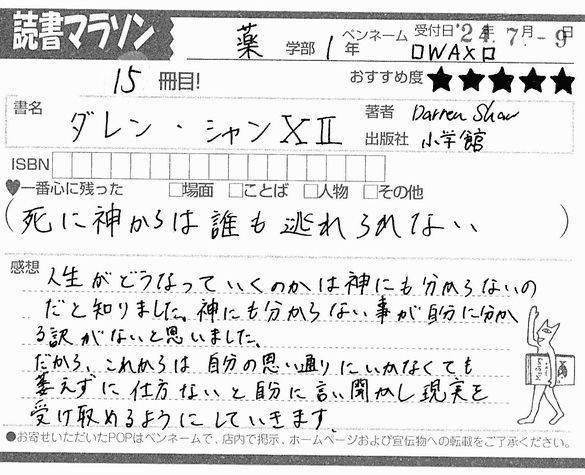 読書マラソン
薬 学部 1 年
ペンネーム □WAX□
受付日 '24年 7月 -9日
15 冊目!
おすすめ度 ★★★★★
書名 ダレン・シャンⅩⅡ
著者 Darren Shan
出版社 小学館
ISBN
♥一番心に残った □場面 □ことば □人物 □その他
(死に神からは誰も逃れられない)
感想 人生がどうなっていくのかは神にも分からないの
だと知りました。神にも分からない事が自分に分か
る訳がないと思いました。
だから、これからは自分の思い通りにいかなくても
萎えずに仕方ないと自分に言い聞かし現実を
受け取めるようにしていきます。
●お寄せいただいたPOPはペンネームで、店内で掲示、ホームページおよび宣伝物への転載をご了承ください。